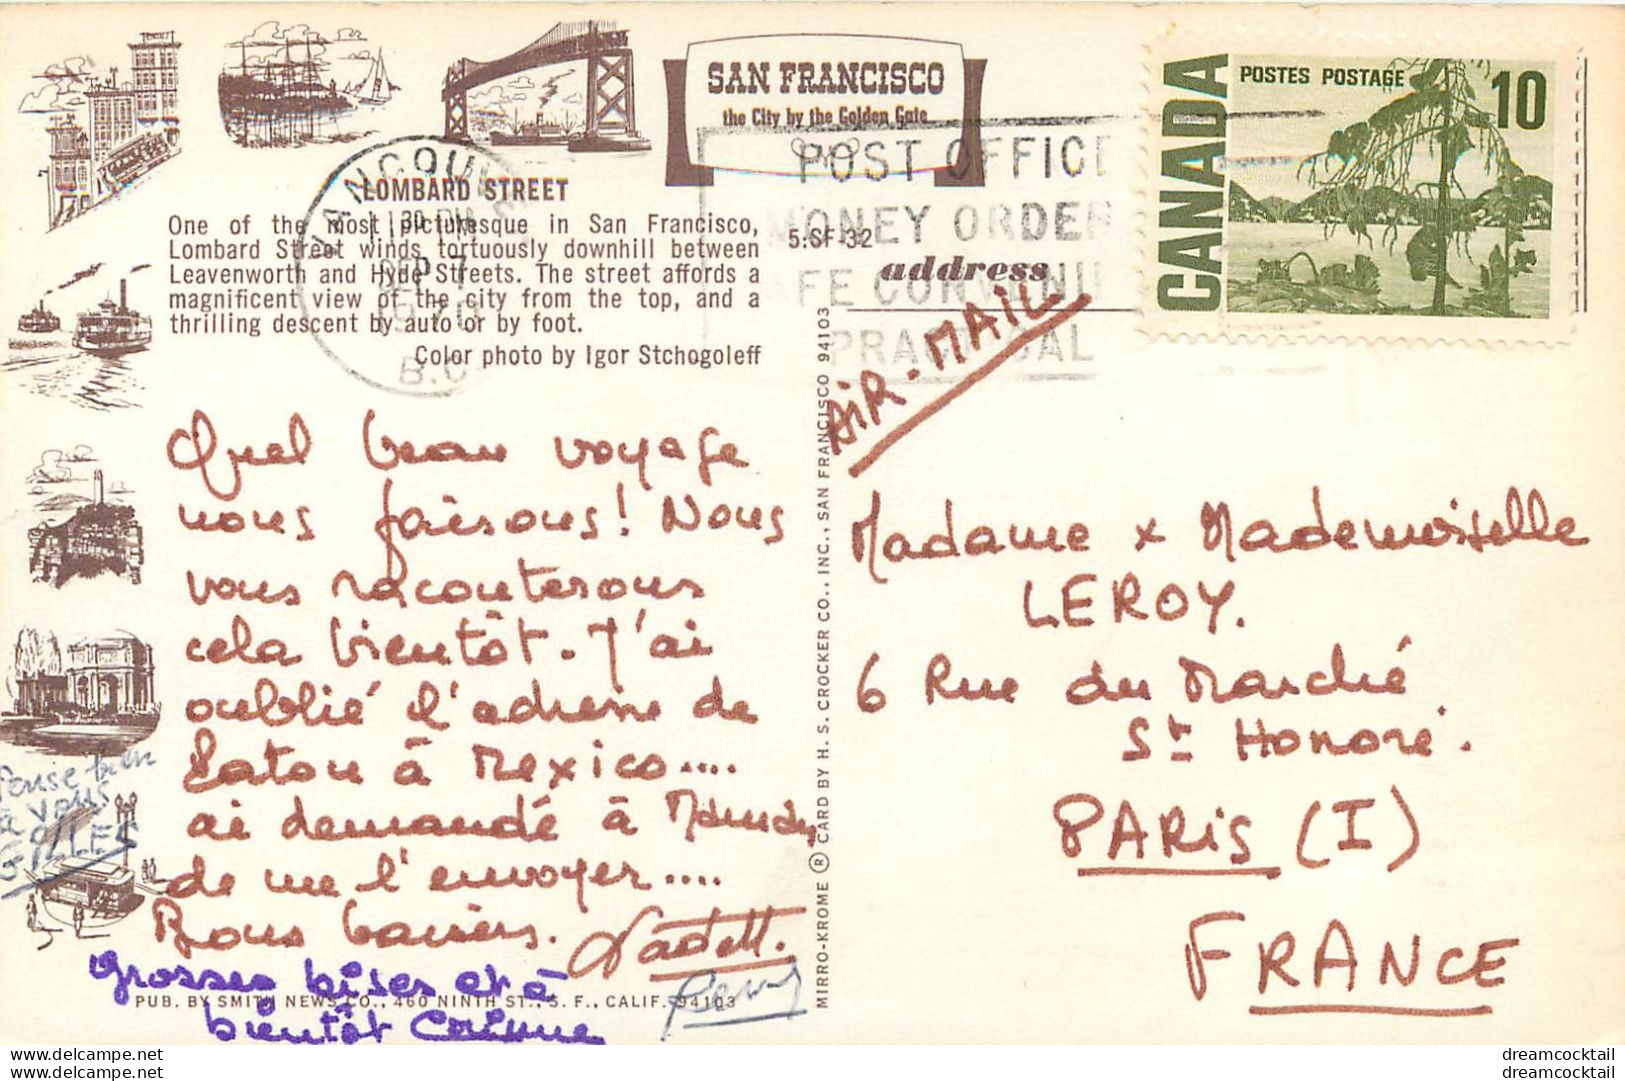 SAN FRANCISCO
the City by the Golden Gate
LOMBARD STREET
One of the most picturesque in San Francisco,
Lombard Street winds tortuously downhill between
Leavenworth and Hyde Streets. The street affords a
magnificent view of the city from the top, and a
thrilling descent by auto or by foot.
Color photo by Igor Stchogoleff
5:SF-32
address
VANCOUVER
30 PM
SEP 7
1970
B.C.
POST OFFICE
MONEY ORDER
PRACTICAL
CANADA
POSTES POSTAGE
10
AIR-MAIL
Quel beau voyage
nous faisons! Nous
vous raconterons
cela bientôt. J'ai
oublié l'adresse de
à Mexico....
ai demandé à
de me l'envoyer....
Bons baisers.
Grosses bises et à
bientôt Corinne
Pense bien
à vous
GILLES
PUB. BY SMITH NEWS CO., 460 NINTH ST., S. F., CALIF. 94103
MIRRO-KROME ® CARD BY H. S. CROCKER CO., INC., SAN FRANCISCO 94103
Madame & Mademoiselle
LEROY.
6 Rue du Marché
St Honoré.
PARIS (I)
FRANCE
dreamcocktail
dreamcocktail